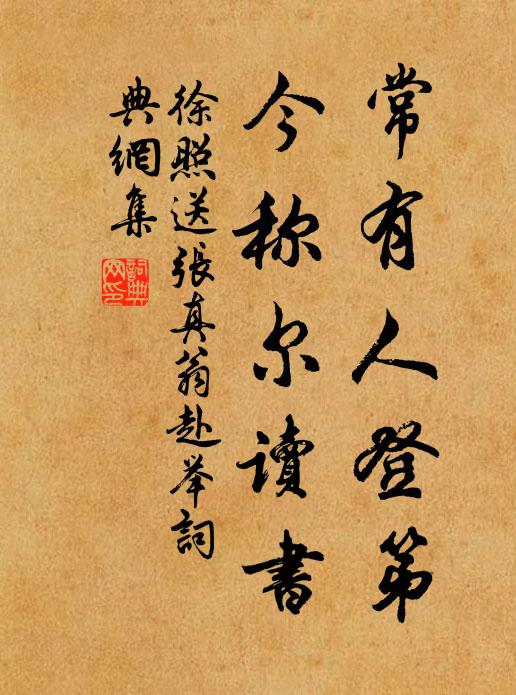 常有人登第
今称尔讀書
徐照送張真翁赴举詞
典網集
詞典
网印